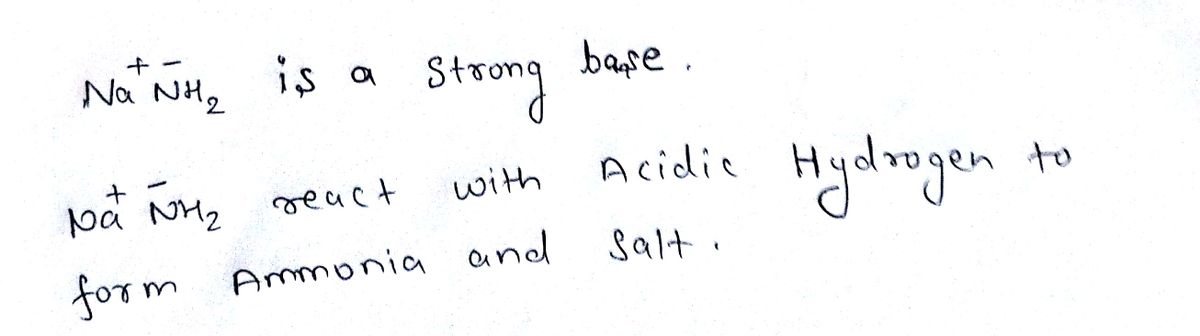 Na⁺ N̄H₂ is a strong base.
Na⁺ N̄H₂ react with Acidic Hydrogen to
form Ammonia and Salt.